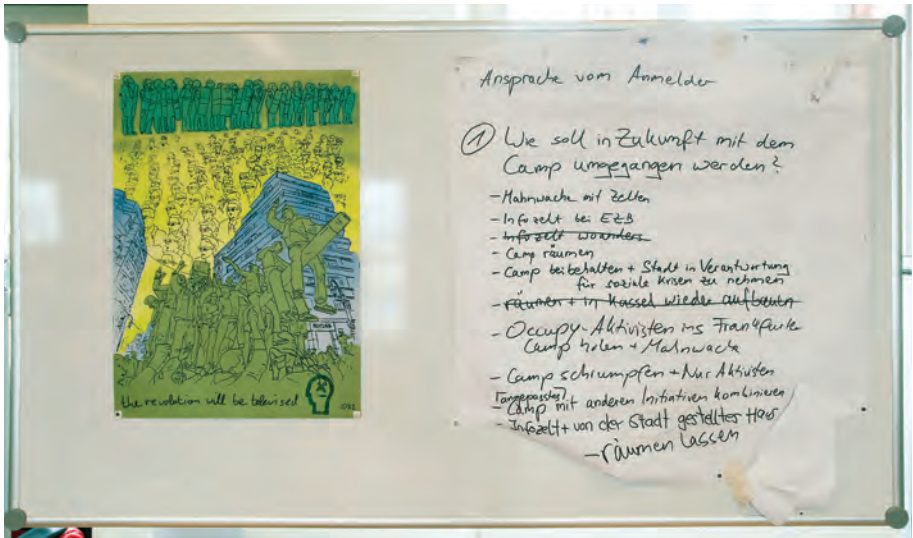 the revolution will be televised
Ansprache vom Anmelder
① Wie soll in Zukunft mit dem
Camp umgegangen werden?
- Mahnwache mit Zelten
- Infozelt bei EZB
- Infozelt woanders
- Camp räumen
- Camp beibehalten + Stadt in Verantwortung
für soziale Krisen zu nehmen
- räumen + in Kassel wieder aufbauen
- Occupy-Aktivisten ins Frankfurter
Camp holen + Mahnwache
- Camp schrumpfen + Nur Aktivisten
[angepasstes]
- Camp mit anderen Initiativen kombinieren
- Infozelt + von der Stadt gestelltes Haus
- räumen lassen